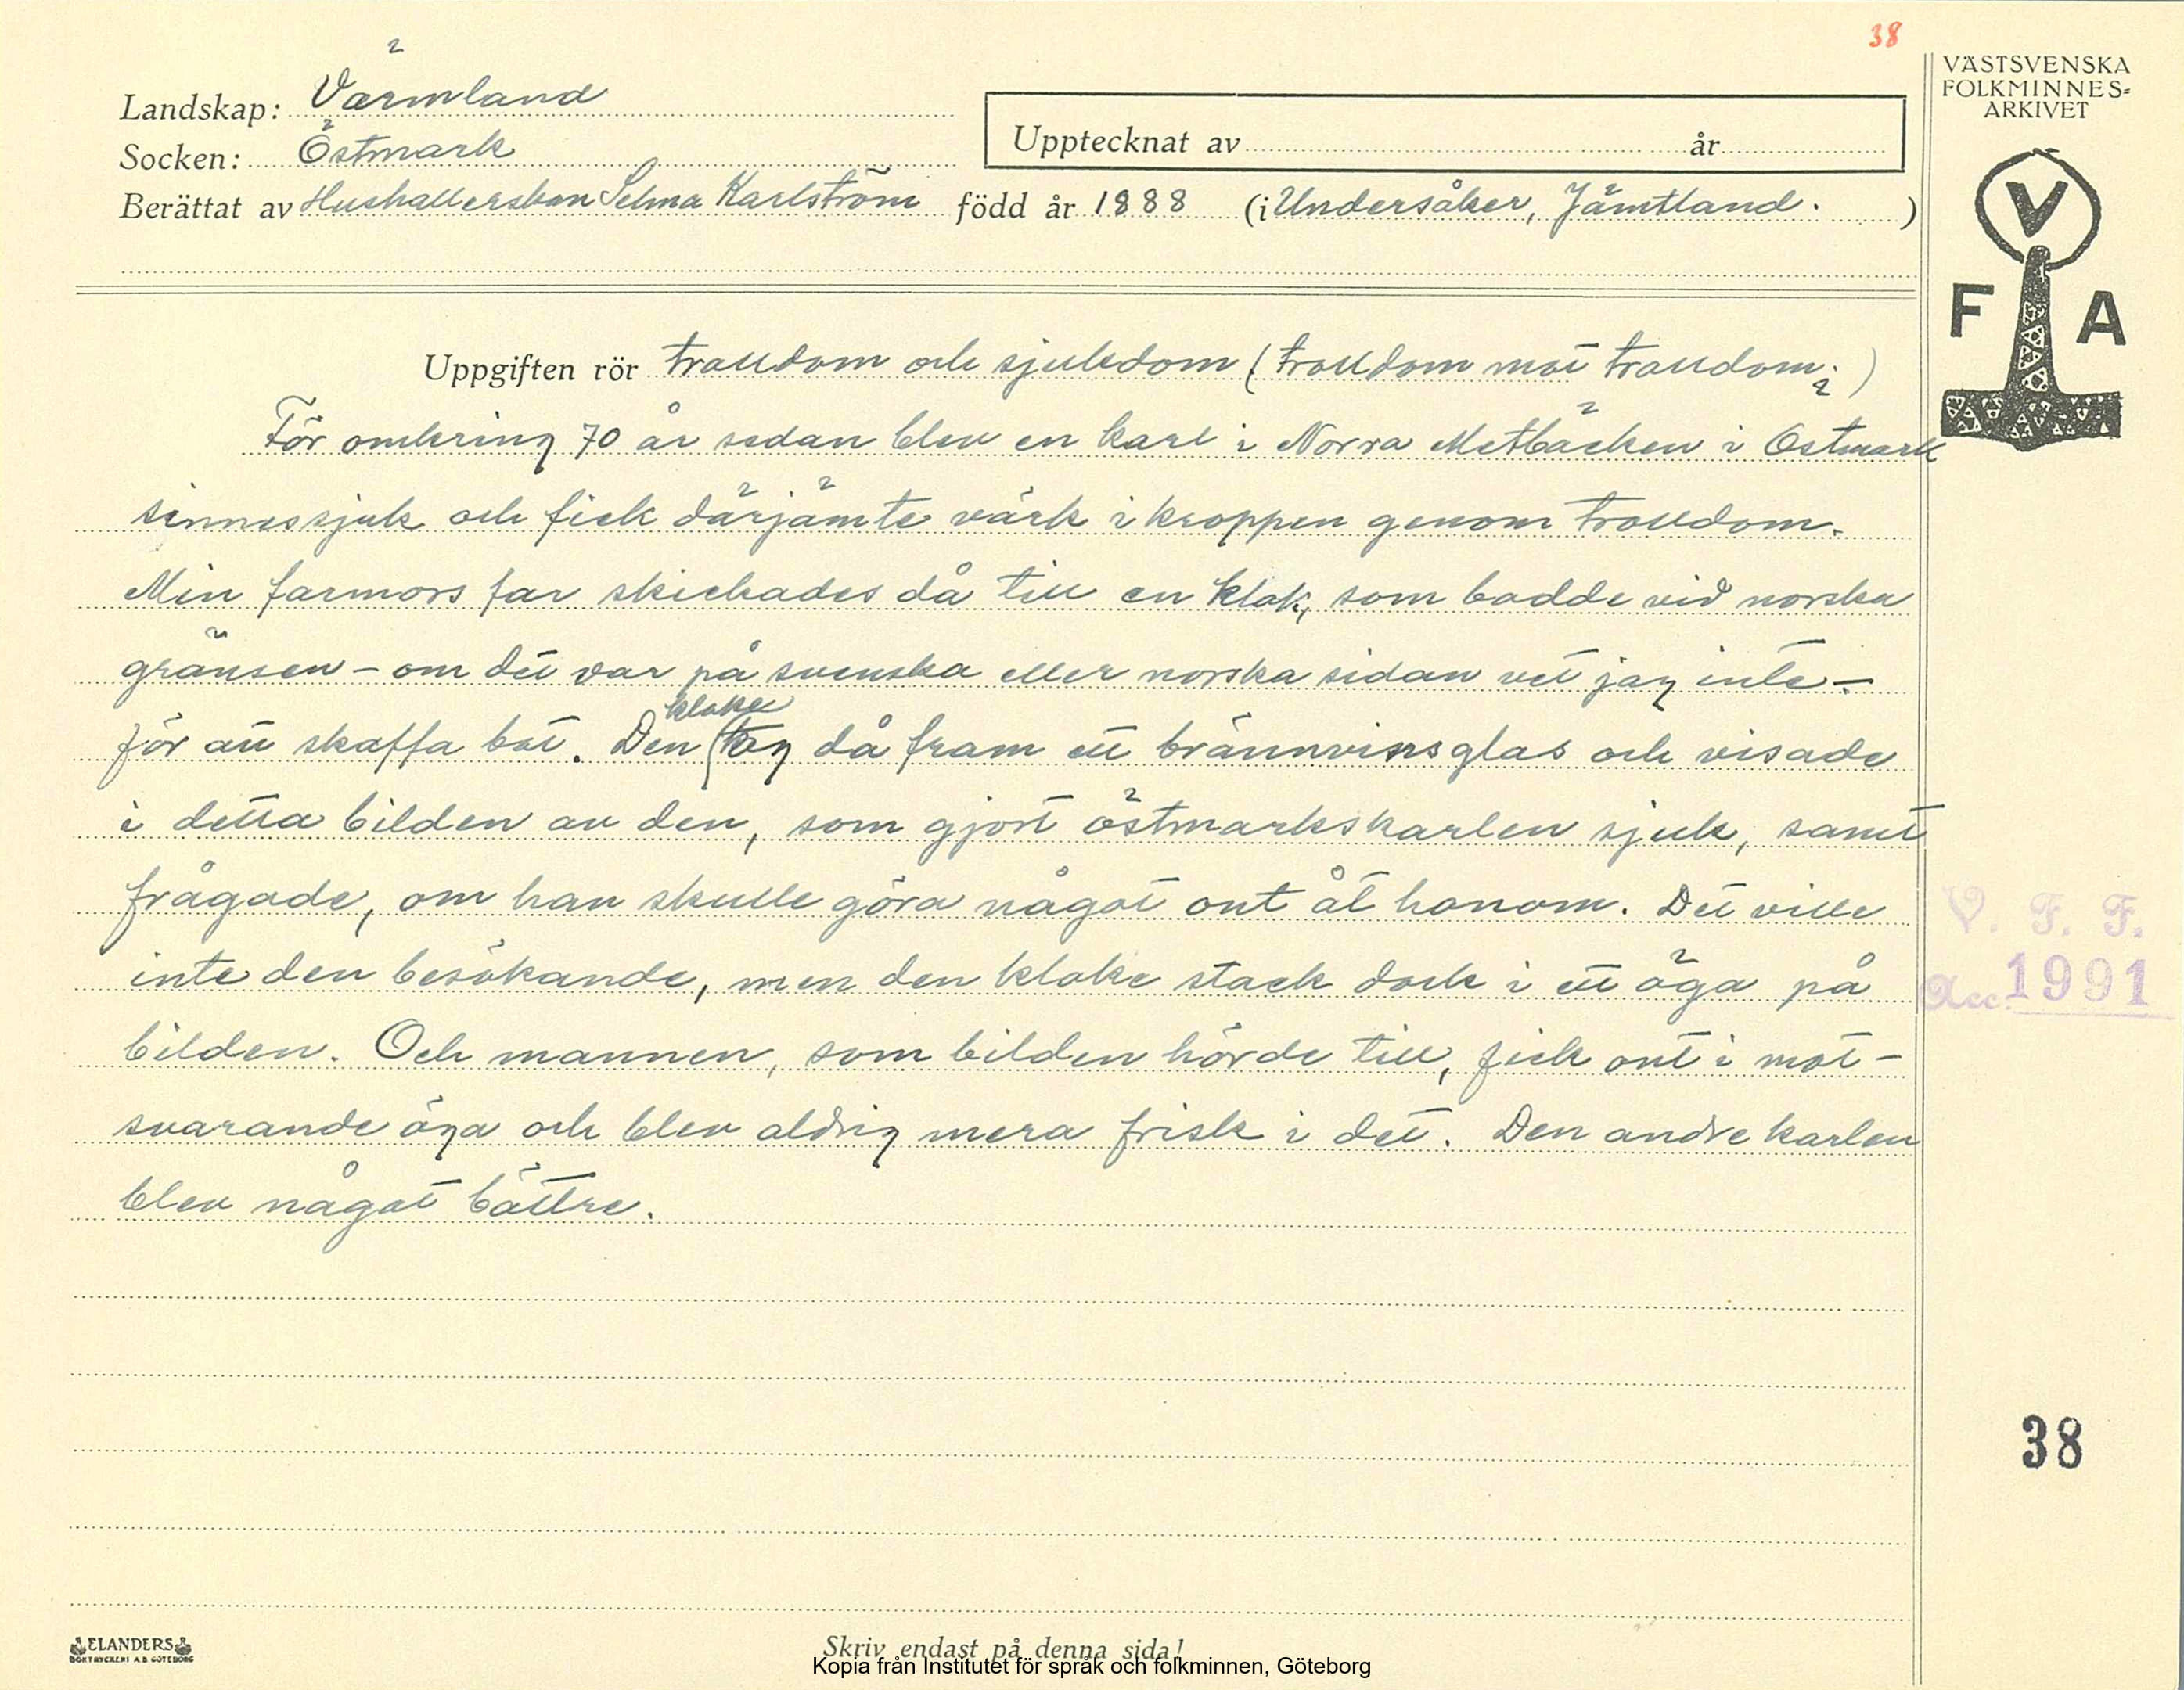 38
VÄSTSVENSKA
FOLKMINNES-
ARKIVET
Landskap: Värmland
Socken: Östmark
Upptecknat av år
Berättat av Hushållerskan Selma Karlström född år 1888 (i Undersåker, Jämtland. )
V
F A
Uppgiften rör trolldom och sjukdom (trolldom mot trolldom;)
För omkring 70 år sedan blev en karl i Norra Metbäcken i Östmark
sinnessjuk och fick därjämte värk i kroppen genom trolldom.
Min farmors far skickades då till en klok, som bodde vid norska
gränsen – om det var på svenska eller norska sidan vet jag inte –
för att skaffa bot. Den kloke tog då fram ett brännvinsglas och visade
i detta bilden av den, som gjort östmarkskarlen sjuk, samt
frågade, om han skulle göra något ont åt honom. Det ville
inte den besökande, men den kloke stack dock i ett öga på
bilden. Och mannen, som bilden hörde till, fick ont i mot-
svarande öga och blev aldrig mera frisk i det. Den andre karlen
blev något bättre.
V. F. F.
Acc. 1991
38
ELANDERS
BOKTRYCKERI A.B. GÖTEBORG
Skriv endast på denna sida!
Kopia från Institutet för språk och folkminnen, Göteborg